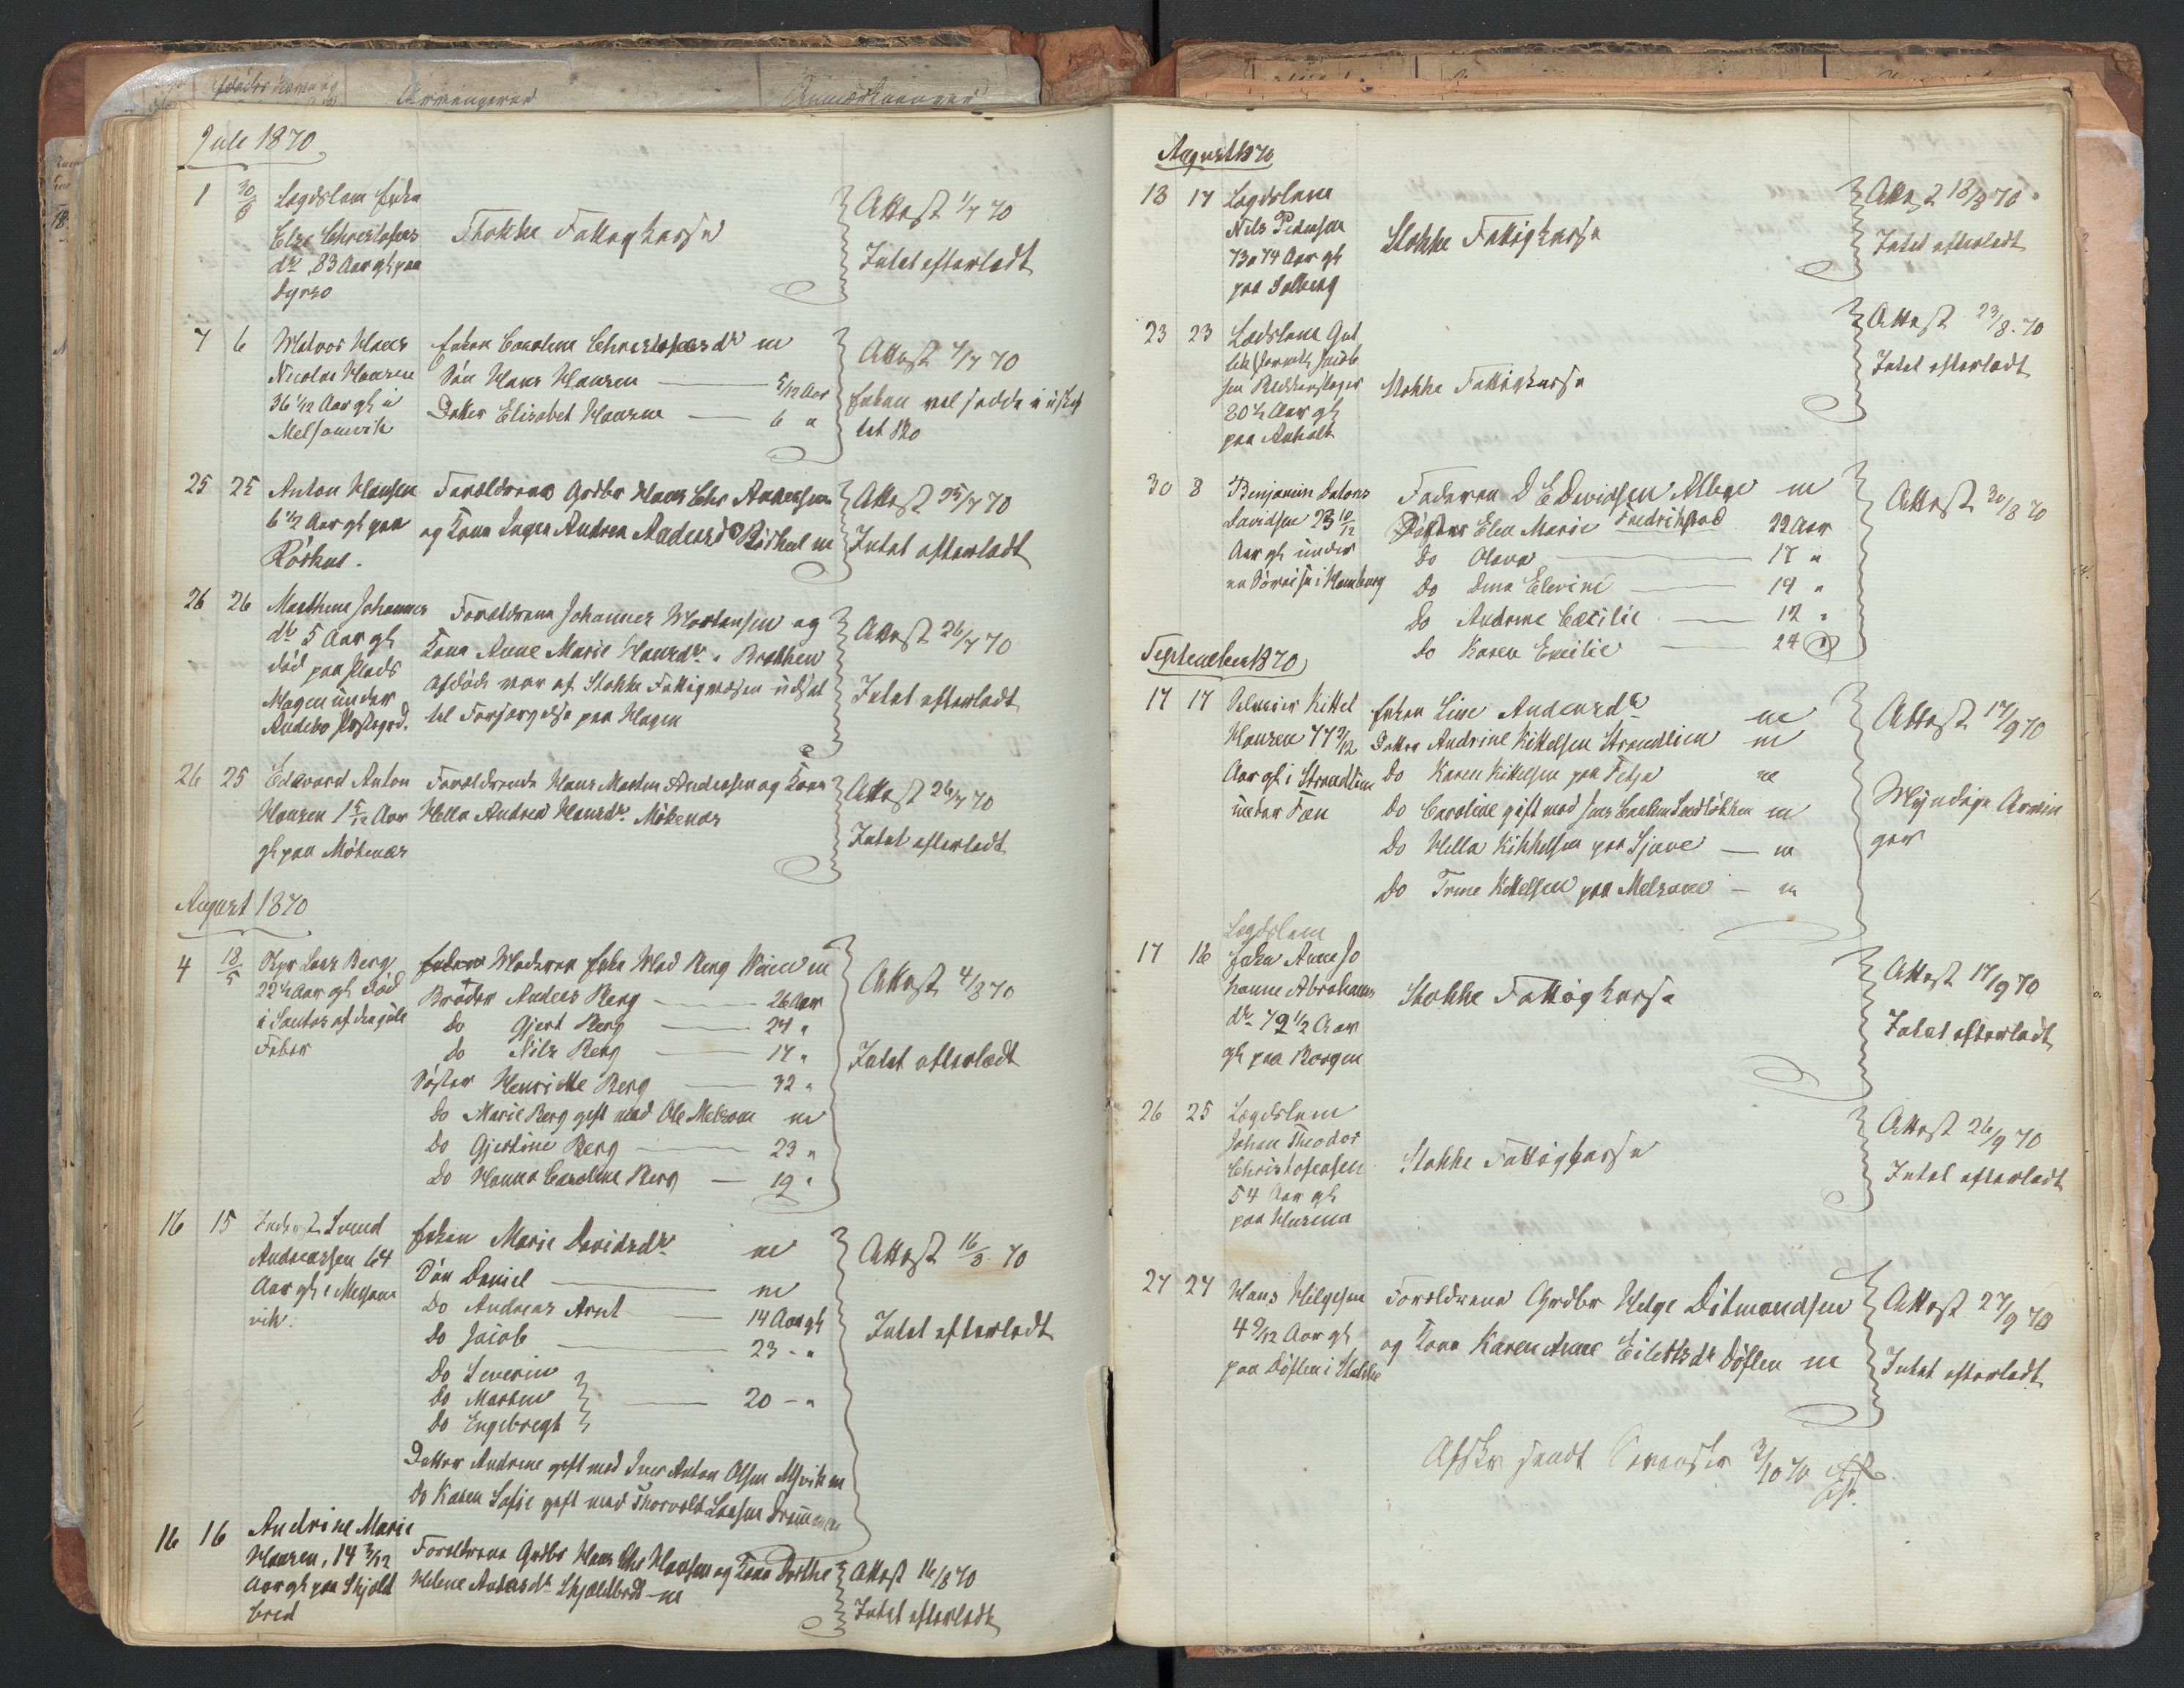 Afdødes Navn og
Arvingerne
Anmærkninger
Juli 1870
1 30/6 Lægdslem Enke
Else Christofers
dr 83 Aar gl paa
Dyrsø
Stokke Fattigkasse
Attest 1/7 70
Intet efterladt
7 6 Matros Hans
Nicolai Hansen
36 1/12 Aar gl i
Melsomvik
Enken Caroline Christofersdr m
Søn Hans Hansen — 5/12 Aar
Datter Elisabet Hansen — 6 "
Attest 7/7 70
Enken vil sidde i uskif
tet Bo
25 25 Anton Hansen
6 1/2 Aar gl paa
Röskus.
Forældrene Grdbr Hans Chr Andersen
og Kona Inger Andrea Andersd m
Attest 25/7 70
Intet efterladt
26 26 Marthine Johannes
dr 5 Aar gl
død paa Plads
Hagen under
Andebo Prestegrd.
Forældrene Johannes Mortensen og
Kona Anne Marie Hansdr. Brekken
Afdøde var af Stokke Fattigvæsen udsat
til Forsørgelse paa Hagen
Attest 26/7 70
Intet efterladt
26 25 Edevard Anton
Hansen 1 5/12 Aar
gl paa Mökenæs
Forældrene Hans Martin Andersen og Kona
Hella Andrea Hansdr. Mökenæs
Attest 26/7 70
Intet efterladt
August 1870
4 18/5 Lars Berg
22 1/2 Aar gl død
i Santos af den gule
Feber
Enken Moderen Enke Mad Berg m
Brøder Anders Berg — 26 Aar
Do Gjert Berg — 24 "
do Nils Berg — 17 "
Søster Henriette Berg — 32 "
Do Marie Berg gift med Ole Melsom m
Do Gjertine Berg — 23 "
Do Hanna Caroline Berg — 19 "
Attest 4/8 70
Intet efterladt
16 15 Inderst Svend
Andreassen 64
Aar gl i Melsom
vik.
Enken Marie Davidsdr m
Søn Daniel — m
Do Andreas Arnt — 14 Aar gl
Do Jacob — 23 - "
Do Severin
Do Martin — 20 - "
Do Engebregt
Datter Andrine gift med Iver Anton Olsen m
Do Karen Sofie gift med Thorvald Larsen Drammen
Attest 16/8 70
Intet efterladt
16 16 Andrine Marie
Hansen, 14 3/12
Aar gl paa Skjeld
bred
Forældrene Grdbr Hans Chr Hansen og Kona Dorthe
Helene Andersdr Skjeldbred - m
Attest 16/8 70
Intet efterladt
August 1870
18 17 Lægdslem
Nils Pedersen
73 a 74 Aar gl
paa Solberg
Stokke Fattigkasse
Attest 18/8 70
Intet efterladt
23 23 Lædslem Gut
Jacob
sen
80 1/2 Aar gl
paa Anholt
Stokke Fattigkasse
Attest 23/8. 70
Intet efterladt
30 8 Benjamin
Davidsen 23 10/12
Aar gl under
en Søreise i Hamburg
Faderen D E Davidsen m
Søster Elen Marie Fredrikstad 22 Aar
Do Olava — 17 "
Do Dina Elevine — 14 "
Do Andrine Cæcilie — 12 "
Do Karen Emilie — 24
Attest 30/8 70
September 1870
17 17 Kittel
Hansen 77 2/12
Aar gl i Strandlien
under Fæn
Enken Live Andersdr m
Datter Andrine Kittelsen Strandlien m
Do Karen Kittelsen paa m
Do Caroline gift med m
Do Hella Kittelsen paa — m
Do Trine Kittelsen paa Melsom — m
Attest 17/9 70
Myndige Arvin
ger
Lægdslem
17 16 Enke Anne Jo
hanne Abrahams
dr 72 1/2 Aar
gl paa Borgen
Stokke Fattigkasse
Attest 17/9 70
Intet efterladt
26 25 Lægdslem
Johan Theodor
Christofersen
54 Aar gl
paa
Stokke Fattigkasse
Attest 26/9 70
Intet efterladt
27 27 Hans Helgesen
4 9/12 Aar gl
paa Döflen i Stokke
Forældrene Grdbr Helge Ditmandsen
og Kona Karen Anne Eilertsdr Döflen m
Attest 27/9 70
Intet efterladt
Afskr sendt 3/10 70